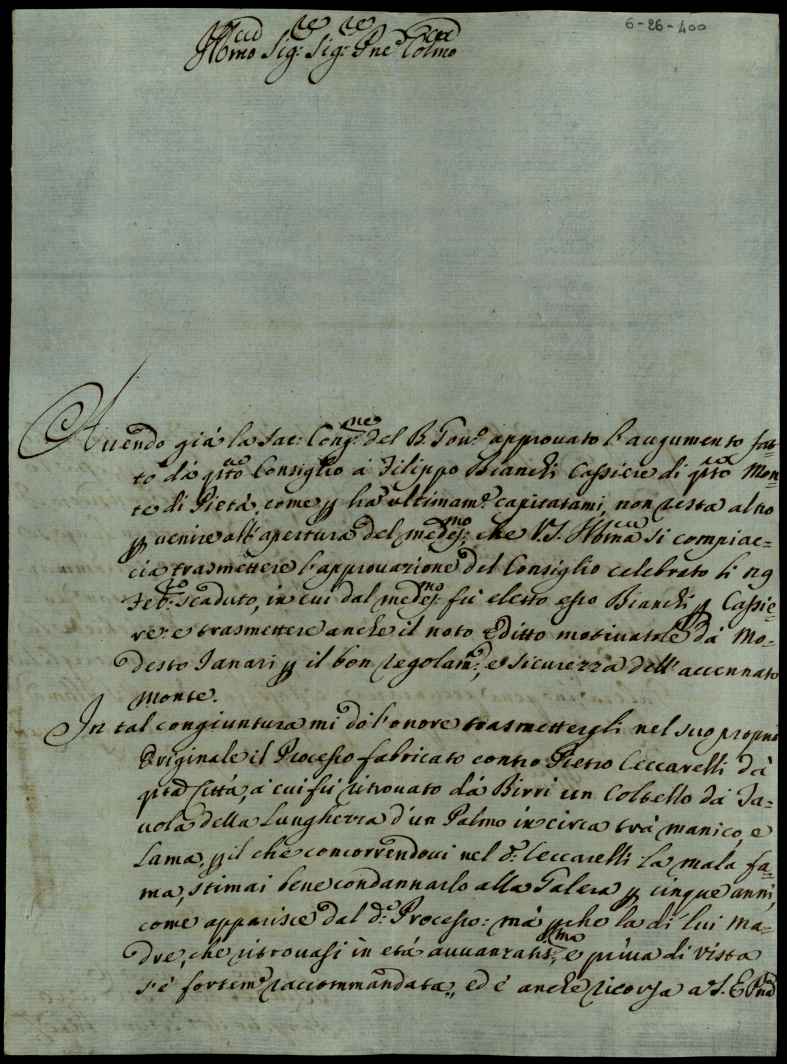 6-26-400
Illmo Sig:re Sig:re Pne Colmo
Avendo già la Sac: Cong:ne del B. Gov:o approvato l'augumento fat-
to dà q̃sto Consiglio à Filippo Bianchi Cassiere di q̃sto Mon-
te di Pietà, come p ha ultimam:e capitatami, non resta altro
p venire all'apertura del medes:mo che V.S. Illma si compiac-
cia trasmettere l'approvazione del Consiglio celebrato li 29
Feb:ro scaduto, in cui dal medes:mo fù eletto esso Bianchi p Cassie-
re: e trasmettere anche il noto Editto motivatole dà Mo-
desto Ianari p il bon regolam:o, e sicurezza dell'accennato
Monte.
In tal congiuntura mi dò l'onore trasmettergli nel suo proprio
Originale il Processo fabricato contro Pietro Ceccarelli dà
q̃sta Città, à cui fù ritrovato dà Birri un Coltello dà Ta-
vola della Lunghezza d'un Palmo in circa trà manico, e
Lama, p il che concorrendovi nel d:o Ceccarelli la mala fa-
ma, stimai bene condannarlo alla Galera p cinque anni,
come apparisce dal d:o Processo: mà pche la di lui Ma-
dre, che ritrovasi in età avvanzatis:ma, e priva di vista
s'è fortem:e raccommandata, ed è anche ricorsa a S. E Pna